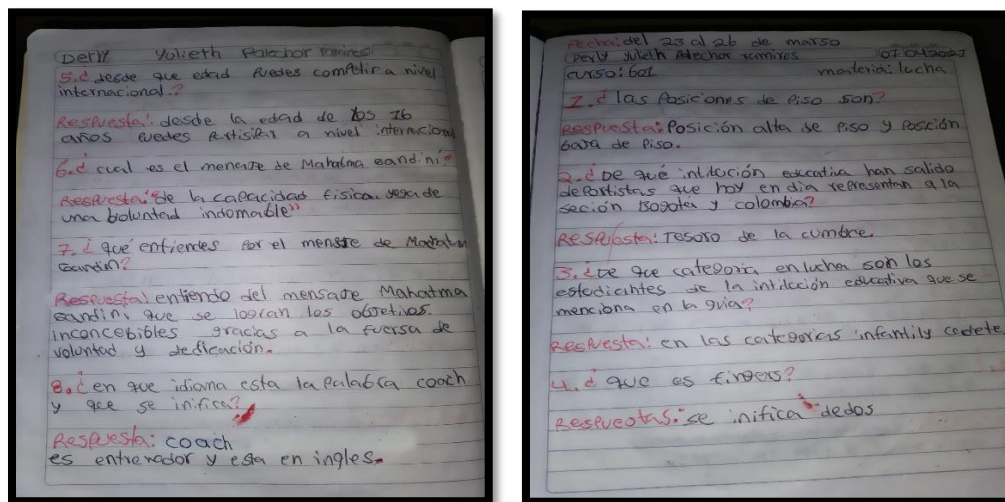 Derly Yolieth Palechor ramires
5.¿ desde que edad Puedes competir a nivel
internacional.?
Respuesta: desde la edad de los 16
años Puedes Partisipar a nivel internacional
6.¿ cual es el mensaje de Mahatma gandini?
Respuesta:"de la capacidad fisica
una boluntad indomable"
7.¿ qué entiendes por el mensaje de Mahatma
gandini?
Respuesta: entiendo del mensaje Mahatma
gandini que se logran los objetivos.
inconcebibles gracias a la fuersa de
voluntad y dedicación.
8.¿ en que idioma esta la palabra coach
y que se inifica?
Respuesta: coach
es entrenador y esta en ingles.
Fecha: del 23 al 26 de marso
Derly Yulieth Palechor ramires
curso: 601 materia: lucha
1.¿ las Posiciones de Piso son?
Respuesta: Posición alta de Piso y Posición
baja de Piso.
2.¿ De qué intitución educativa han salido
deportistas que hoy en dia representan a la
seción Bogota y colombia?
Respuesta: Tesoro de la cumbre.
3.¿De que categoria en lucha son los
estudiantes de la intitucción educativa que se
menciona en la guia?
Respuesta: en las categorias infantil y cadete
4.¿ que es fingers?
Respuestas: se inifica dedos